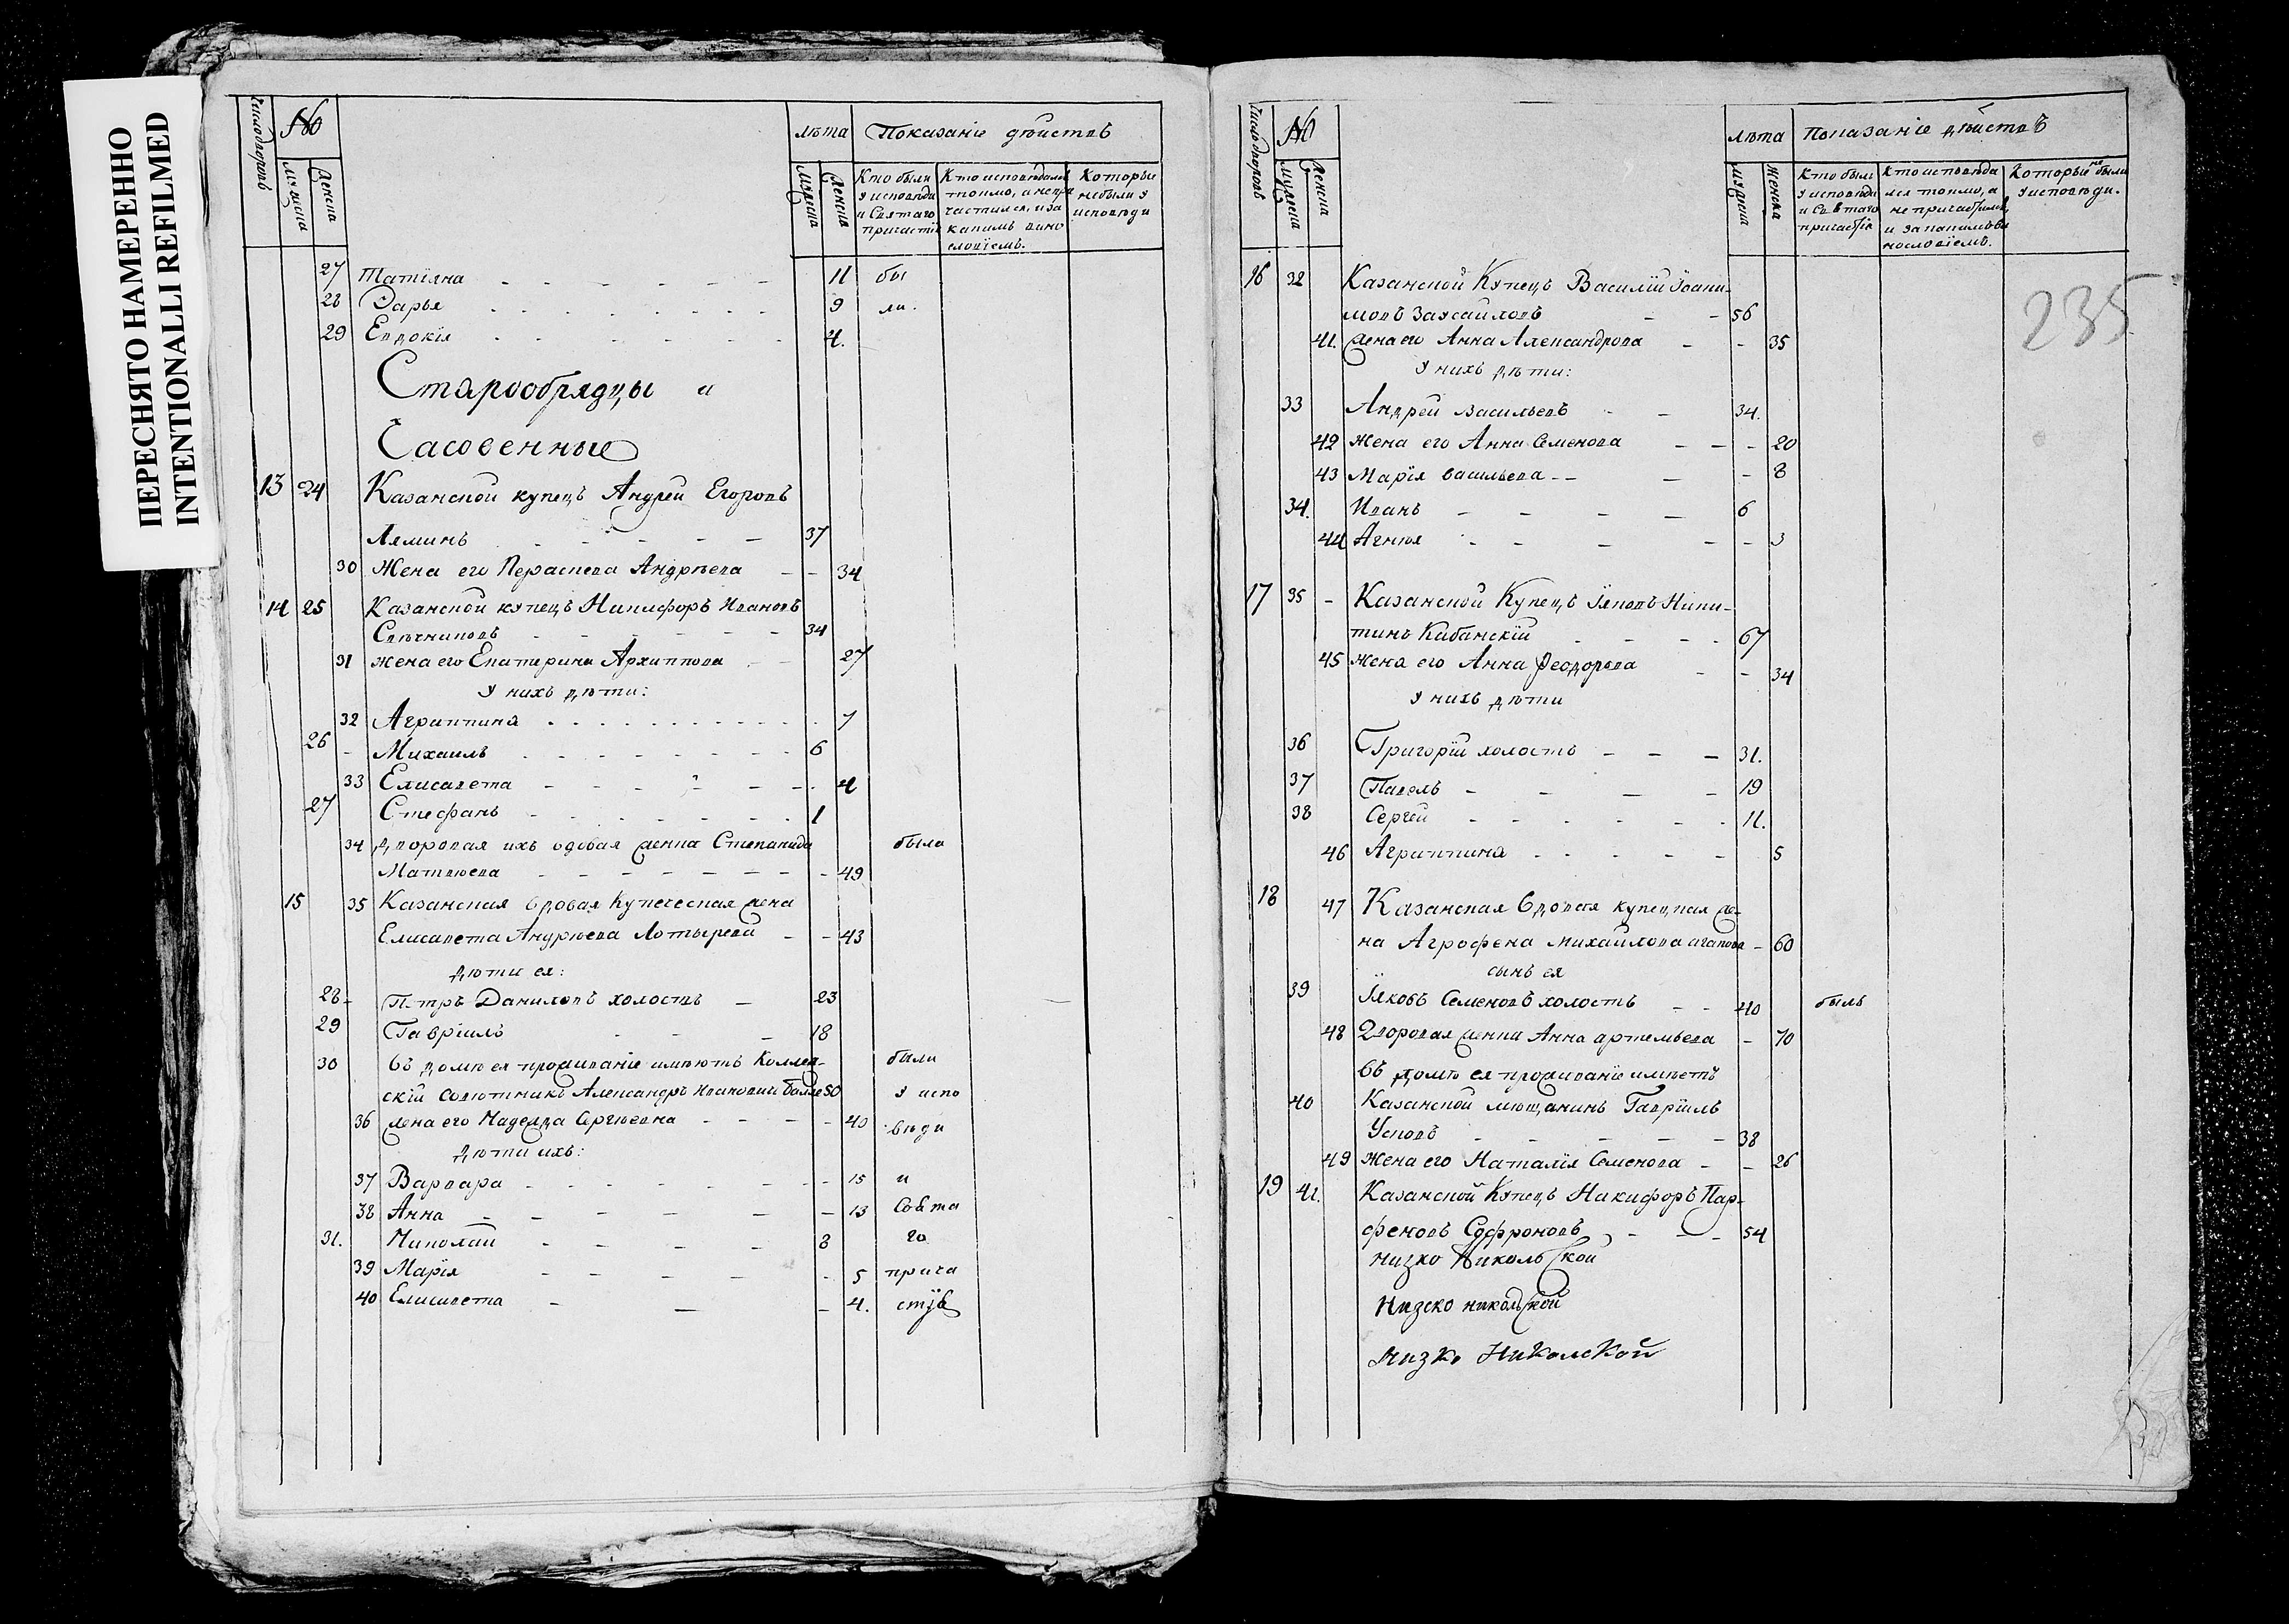 ПЕРЕСНЯТО НАМЕРЕННО
INTENTIONALLI REFILMED
Число дворовъ
№
Мужеска
Женска
лѣта
Показаніе дѣйствъ
Мужеска
Женска
Кто были у исповѣди и Святаго причастія
Кто исповѣдался токмо, а не причастился, и за какимъ вино словіемъ.
Которые не были у исповѣди
27 Татіяна 11 бы
28 Дарья 9 ли.
29 Евдокія 4.
Старообрядцы и
Часовенные
13 24 Казанской купецъ Андрей Егоровъ
Ляминъ 37
30 Жена его Параскева Андрѣева 34
14 25 Казанской купецъ Никифоръ Ивановъ
Свѣчниковъ 34
31 жена его Екатерина Архиппова 27
У нихъ дѣти:
32 Агриппина 7
26 Михаилъ 6
33 Елисавета 4
27 Стефанъ 1
34 дворовая ихъ вдовая женка Степанида была
Матвѣева 49
15 35 Казанская вдовая Купеческая жена
Елисавета Андрѣева Лотырева 43
Дѣти ея:
28 Петръ Даниловъ холостъ 23
29 Гавріилъ 18
30 Въ домѣ ея проживаніе имѣютъ Коллеж- были
скій Совѣтникъ Александръ Ивановичъ 50 у испо
36 жена его Надежда Сергѣевна 40 вѣди
Дѣти ихъ:
37 Варвара 15 и
38 Анна 13 Свѣта
31. Николай 8 го
39 Марія 5 прича
40 Елисавета 4. стія
Число дворовъ
№
Мужеска
Женска
лѣта
Показаніе дѣйствъ
Мужеска
Женска
Кто были у исповѣди и Святаго причастіе
Кто исповѣдался токмо, а не причастился, и за какимъ винословіемъ.
Которые не были у исповѣди.
235
16 32 Казанской Купецъ Василій Іоаки-
мовъ Заусайловъ 56
41. Жена его Анна Александрова 35
У нихъ дѣти:
33 Андрей Васильевъ 34.
42 жена его Анна Семенова 20
43 Марія Васильева 8
34. Иванъ 6
44 Агнія 3
17 35 Казанской Купецъ Іяковъ Ники-
тинъ Кабанскій 67
45 Жена его Анна Феодорова 34
У нихъ дѣти
36 Григорій холостъ 31.
37 Павелъ 19
38 Сергей 11.
46 Агриппина 5
18 47 Казанская Вдовая купецкая же-
на Агрофена Михайлова агапова 60
сынъ ея
39 Іяковъ Семеновъ холостъ 40 былъ
48 Дворовая женка Анна артемьева 70
Въ домѣ ея проживаніе имѣетъ
40 Казанской мѣщанинъ Гавріилъ
Усковъ 38
49 Жена его Наталія Семенова 26
19 41. Казанской Купецъ Никифоръ Пар-
феновъ Софроновъ 54
низко Николской
Низско николской
Низко Николской